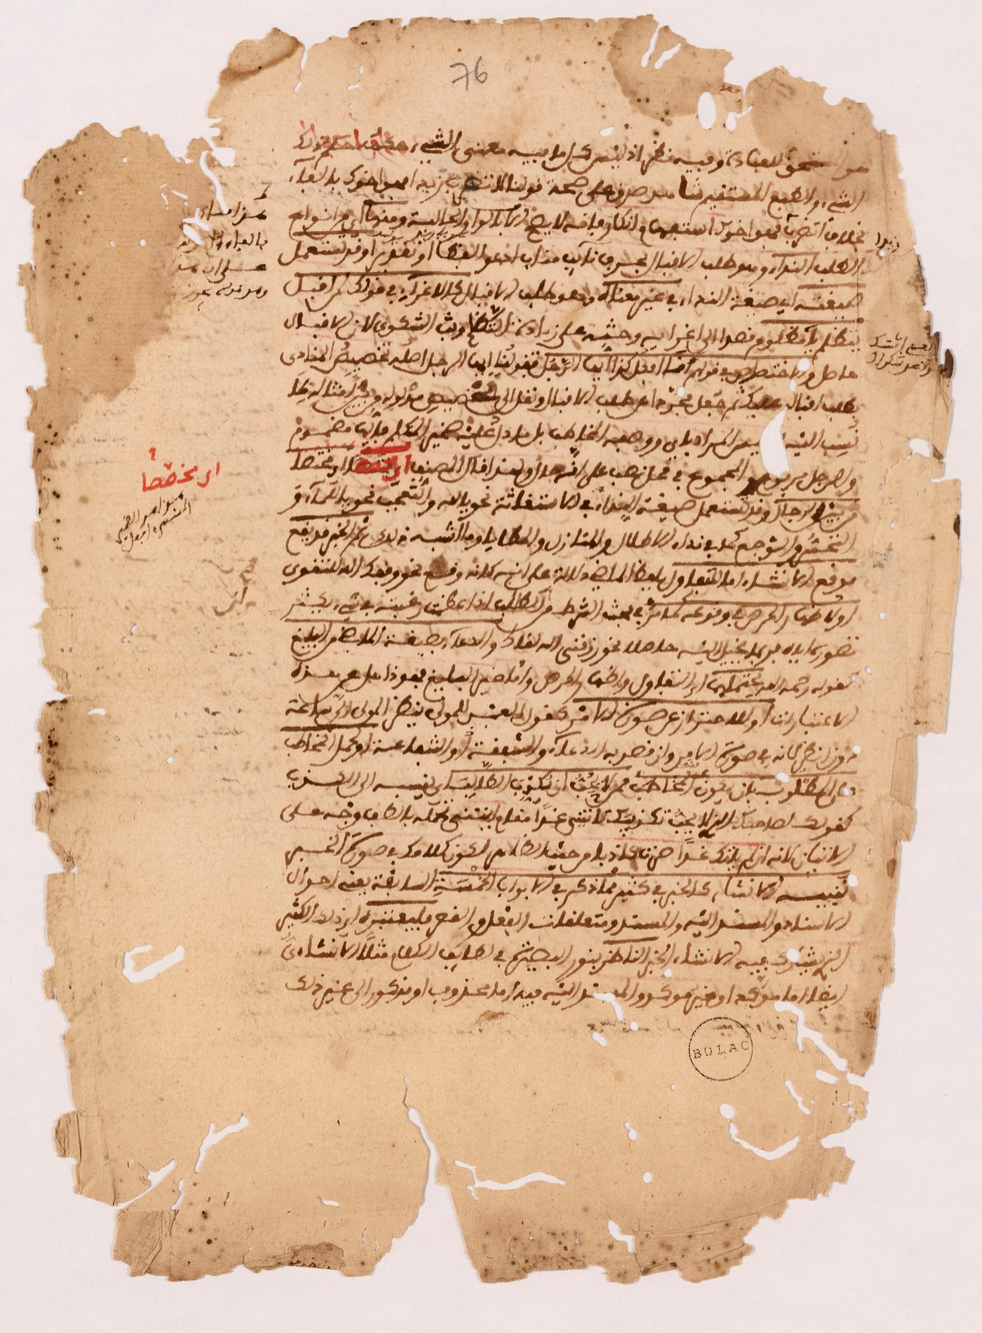 76
هو المستحق للعبادة وفيه نظر اذ ليس كل ما فيه معنى الشيء حكمه حكم ذلك
الشيء والطبع المستقيم شاهد صدق على صحة قولنا لا تضرب زيدا فهو اخوك بالفاء
بخلاف اتضرب فهو اخوك استفهام انكار فانه لا يصح الا بالواو الحالية ومنها اي من انواع
الطلب النداء وهو طلب الاقبال بحرف نائب مناب ادعوا لفظا او تقديرا وقد تستعمل
صيغته اي صيغة النداء في غير معناه وهو طلب الاقبال كالاغراء في قولك لمن اقبل
يتظلم يا مظلوم قصدا الى اغرائه وحثه على زيادة التظلم وبث الشكوى لان الاقبال
حاصل والاختصاص في قولهم انا افعل كذا ايها الرجل فقولنا ايها الرجل اصله تخصيص المنادى
بطلب اقباله عليك ثم جعل مجردا عن طلب الاقبال ونقل الى تخصيص مدلوله من بين امثاله بما
نسب اليه اذ ليس المراد باي ووصفه المخاطب بل ما دل عليه ضمير المتكلم فايها مضموم
والرجل مرفوع والمجموع في محل نصب على انه حال ولهذا قال المصنف اي متخصصا اي مختصا
من بين الرجال وقد تستعمل صيغة النداء في الاستغاثة نحو يا لله والتعجب نحو يا للماء و
التحسر والتوجع كما في نداء الاطلال والمنازل والمطايا وما اشبه ذلك ثم الخبر قد يقع
موقع الانشاء اما للتفاول بلفظ الماضي دلالة على انه كانه وقع نحو وفقك الله للتقوى
او لاظهار الحرص في وقوعه كما مر في بحث الشرط من ان الطالب اذا عظمت رغبته في شيء يكثر
تصوره اياه فربما يخيل اليه حاصلا نحو رزقني الله لقاك والدعاء بصيغة الماضي من البليغ
كقوله رحمه الله يحتملهما اي التفاول واظهار الحرص واما غير البليغ فهو ذاهل عن هذه
الاعتبارات او للاحتراز عن صورة الامر كقول العبد للمولى ينظر المولى الي ساعة
دون انظر لانه في صورة الامر وان قصد به الدعاء والشفعة او الشفاعة او لحمل المخاطب
على المطلوب بان يكون المخاطب ممن لا يحب ان يكذب الطالب اي ينسبه الى الكذب
كقولك لصاحبك الذي لا يحب تكذيبك تاتيني غدا مقام ايتني تحمله بالطف وجه على
الاتيان لانه ان لم ياتك غدا صرت كاذبا من حيث الظاهر لكون كلامك في صورة الخبر
تنبيه الانشاء كالخبر في كثير مما ذكر في الابواب الخمسة السابقة يعني احوال
الاسناد والمسند اليه والمسند ومتعلقات الفعل والقصر فليعتبره اي ذلك الكثير
الذي يشترك فيه الانشاء الخبر الناظر بنور البصيرة في لطائف الكلام مثلا الانشاءي
ايضا اما موكد او غير موكد والمسند اليه فيه اما محذوف او مذكور الى غير ذلك
زيدا
اي مخصصا
BULAC